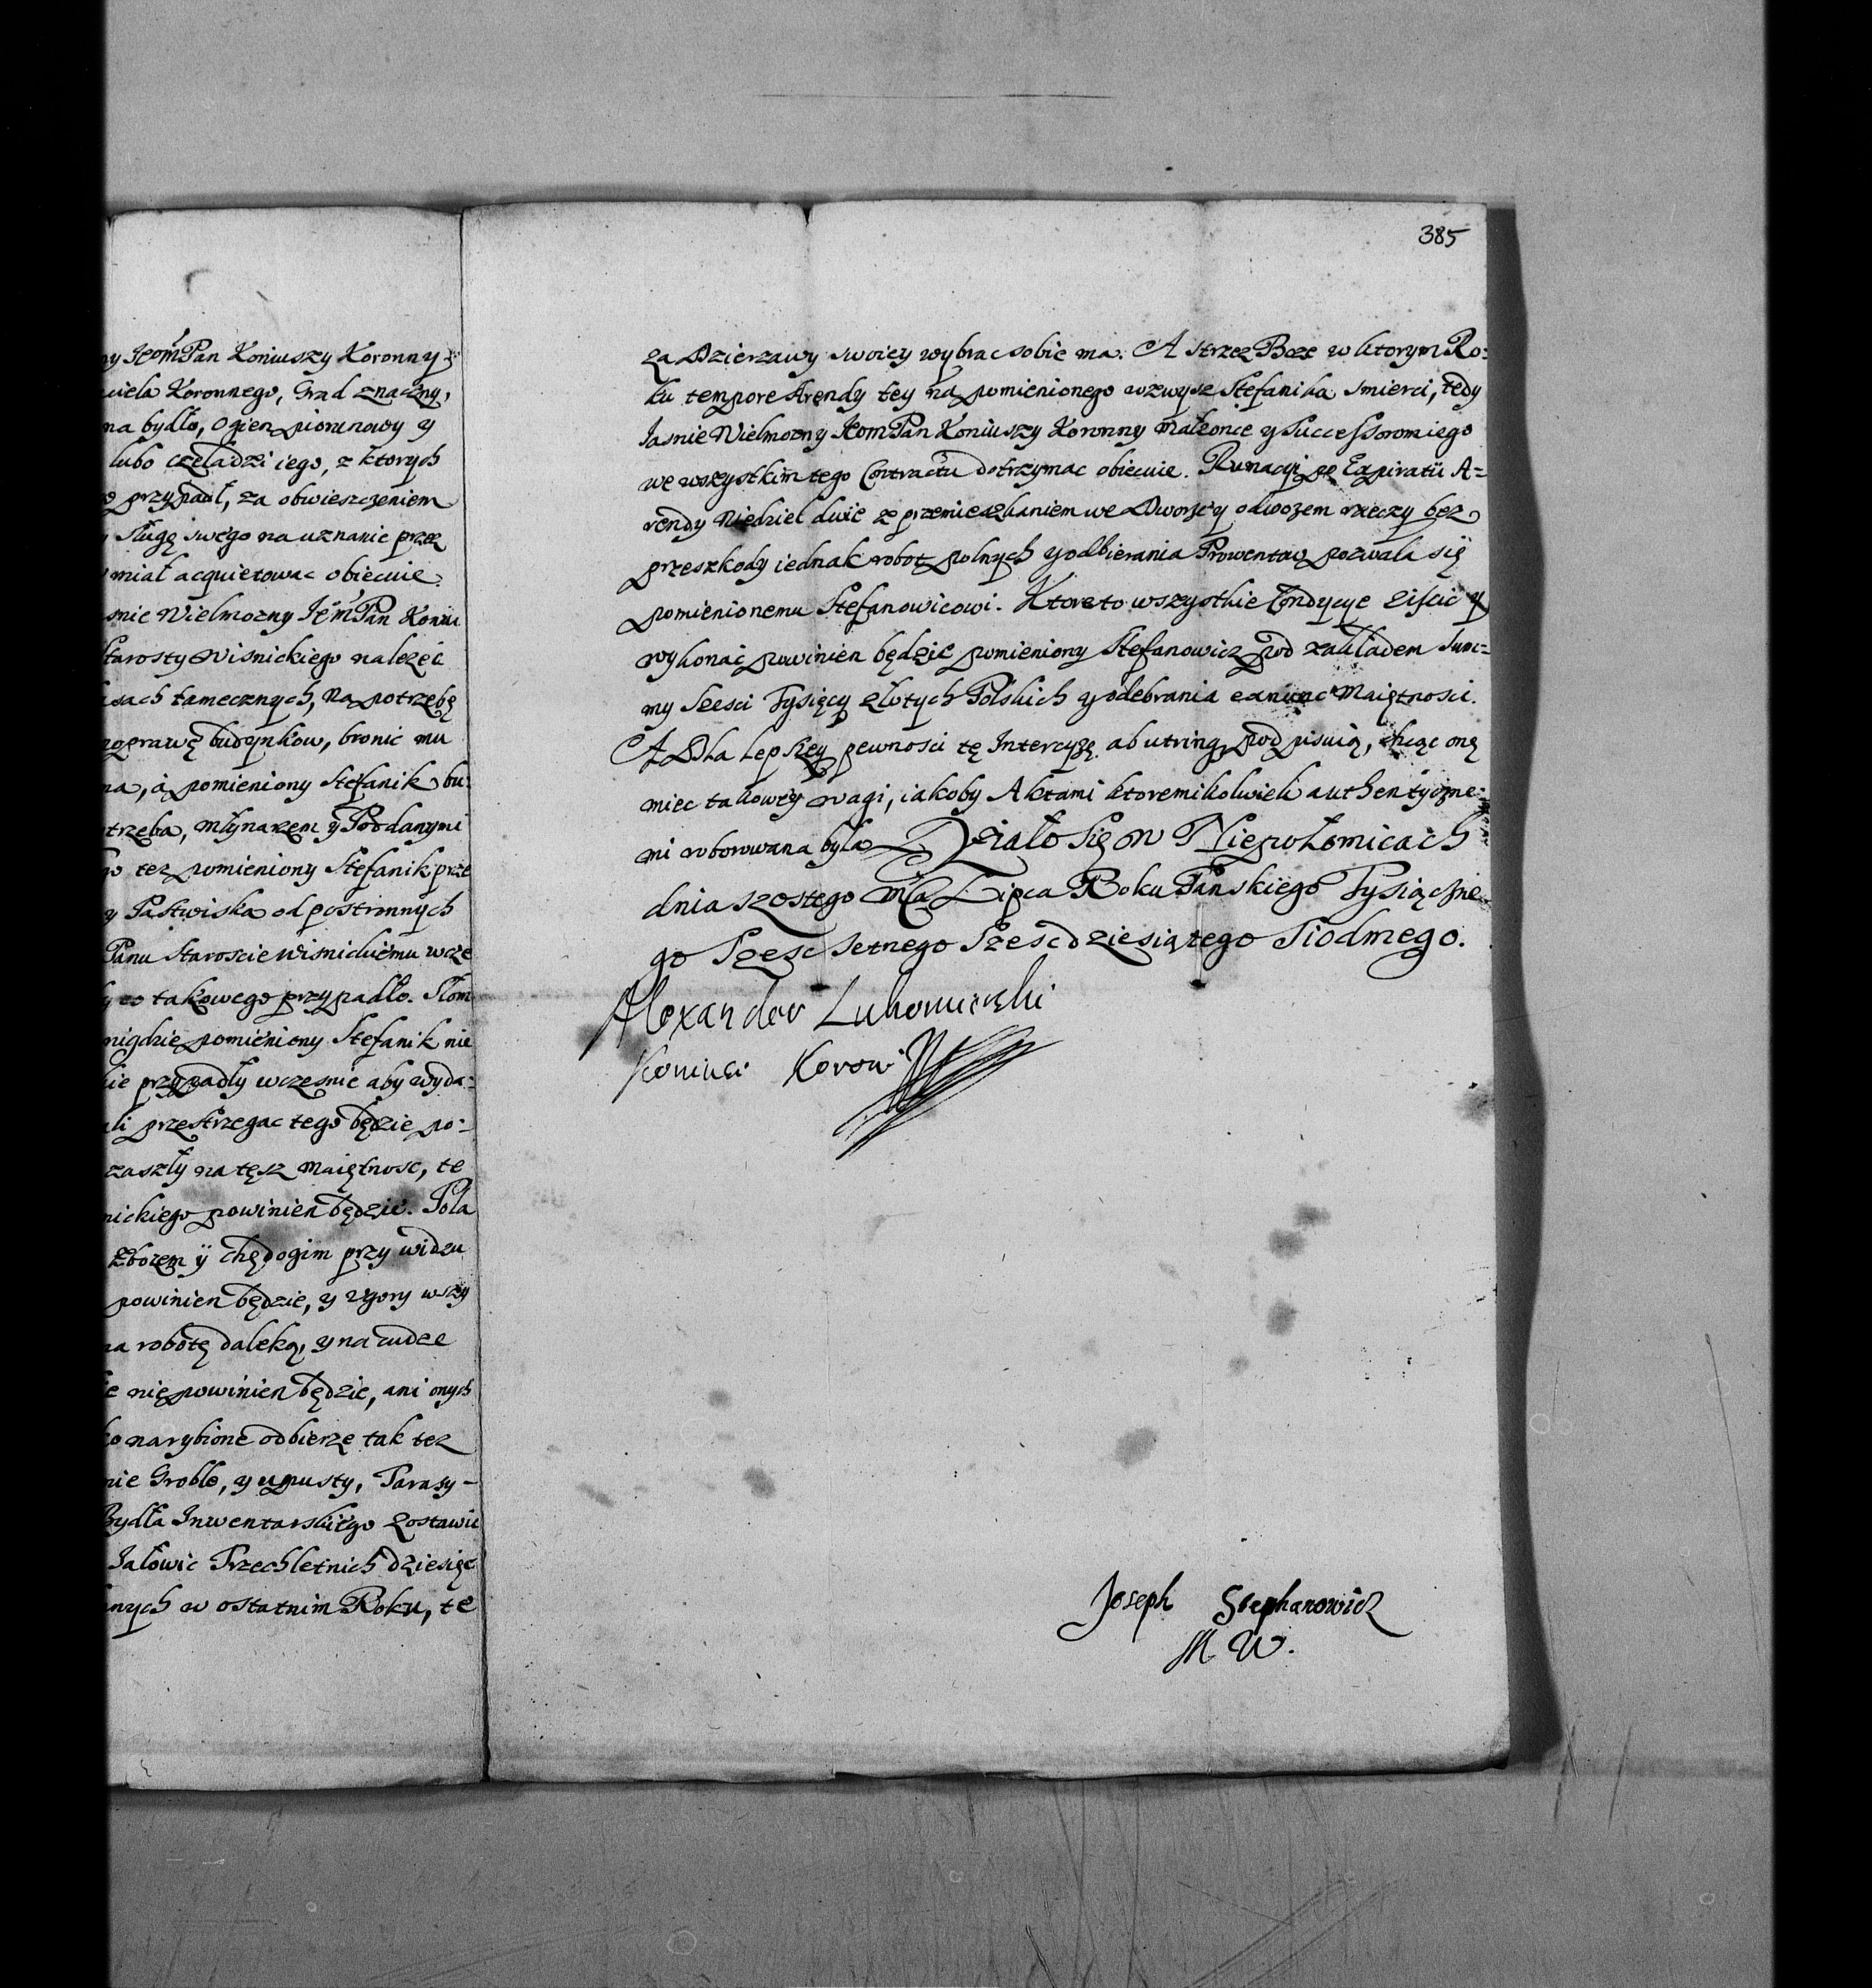 ny Jeom Pan Koniuszy Koronny z
wiela Koronnego, Grad znaczny,
na bydło, Ogien piorunowy y
lubo czeladzi iego, z ktorych
przypadł, za obwieszczeniem
Sługę swego na uznanie przez
miał acquietowac obiecuie.
snie Wielmozny Jem Pan Koniu
starosty Wisnickiego nalezec
sach tamecznych, na potrzebę
poprawę budynkow, bronic mu
na, a pomieniony Stefanik bu:
trzeba, młynarzem y Poddanymi
go tez pomieniony Stefanik prze
y Pastwiska od postronnych
Panu Staroscie Wisnickiemu wcze
co takowego przypadło. Słom
nigdzie pomieniony Stefanik nie
kie przypadły wczesnie aby wyda:
li przestrzegac tego będzie po:
zaszły na tęsz maiętnosc, te
nickiego powinien będzie. Pola
Zbozem ÿ chędogim przy widzu
powinien będzie, y ugory wszy
na robotę daleką, y na cudze
ie nie powinien będzie, ani onych
ko narybione odbierze tak tez
nie Groble, y upusty, Tarasy-
Bydła Inwentarskiego zostawic
Jałowic Trzechletnich dziesięc
nych w ostatnim Roku, te
385
za Dzierzawy swoiey wybrac sobie ma. A strzez Boze w ktorym Ro:
ku tempore Arendy tey na pomienionego wzwysz Stefanika smierci, tedy
Jasnie Wielmozny Jeom Pan Koniuszy Koronny małzonce y Successorom iego
we wszystkim tego Contractu dotrzymac obiecuie. Rumacyi po Expiratii A=
rendy Niedziel dwie z przemieszkaniem we Dworze y odwozem rzeczy bez
przeszkody iednak robot polnych y odbierania Prowentow pozwala się
pomienionemu Stefanowicowi. Ktore to wszystkie Condycye ziscic y
wykonac powinien będzie pomieniony Stefanowicz pod zakładem Sum=
my Szesci Tysięcy złotych Polskich y odebrania ex nunc Maiętnosci.
A Dla Lepszey pewnosci tę Intercyzę ab utrinq podpisuią, chcąc onę
miec takowey wagi, iakoby Aktami ktoremikolwiek authentyczne:
mi roborowana była Działo się w Niepołomicach
dnia szostego Mca Lipca Roku Panskiego Tysiączne
go Szesc Setnego Szescdziesiątego Siodmego.
Alexander Lubomirski
Koniusi Koron
Joseph Stephanowicz
M W.